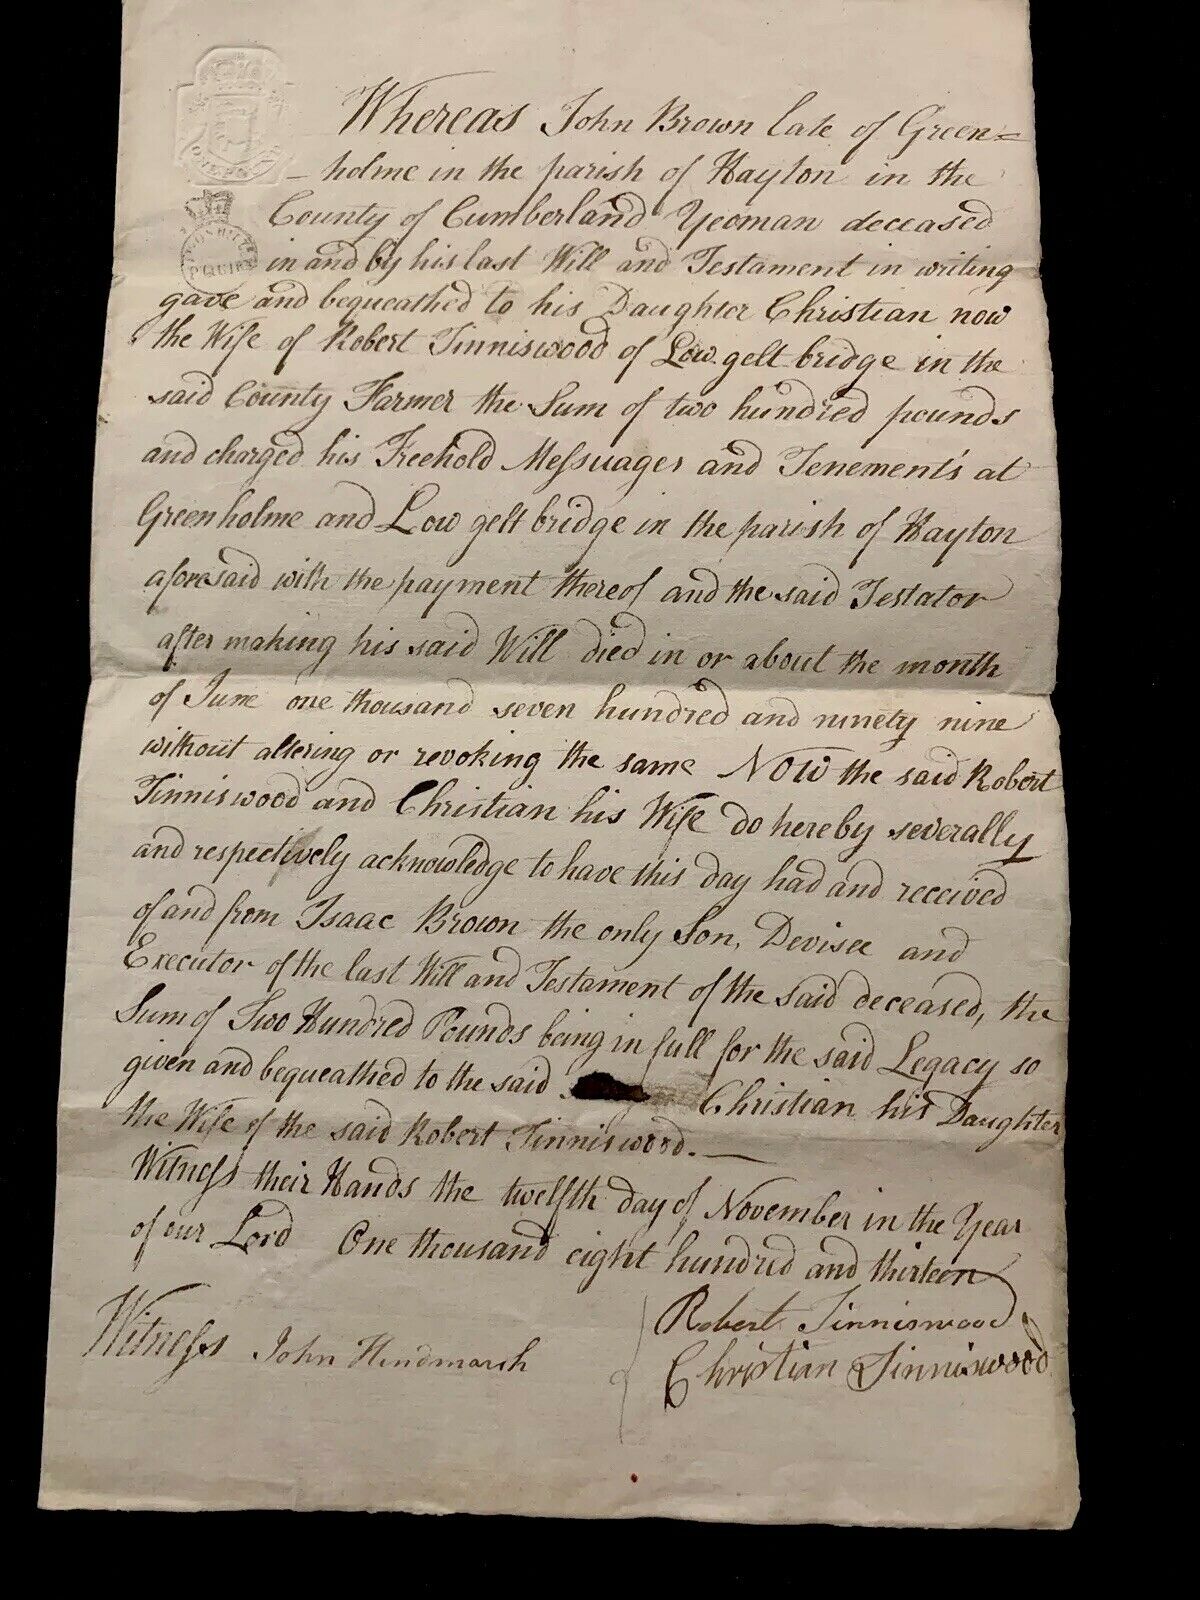 ONE POUND
HONI SOIT Q
Whereas John Brown late of Green=
– holme in the parish of Hayton in the
County of Cumberland Yeoman deceased
in and by his last Will and Testament in writing
gave and bequeathed to his Daughter Christian now
the Wife of Robert Tinniswood of Low gelt bridge in the
said County Farmer the Sum of two hundred pounds
and charged his Freehold Meſsuages and Tenements at
Greenholme and Low gelt bridge in the parish of Hayton
aforesaid with the payment thereof and the said Testator
after making his said Will died in or about the month
of June one thousand seven hundred and ninety nine
without altering or revoking the same NOW the said Robert
Tinniswood and Christian his Wife do hereby severally
and respectively acknowledge to have this day had and received
of and from Isaac Brown the only Son, Devisee and
Executor of the last Will and Testament of the said deceased, the
Sum of Two Hundred Pounds being in full for the said Legacy so
given and bequeathed to the said Christian his Daughter
the Wife of the said Robert Tinniswood. —
Witneſs their Hands the twelfth day of November in the Year
of our Lord One thousand eight hundred and thirteen
Robert Tinniswood
Witneſs John Hindmarsh
Christian Tinniswood